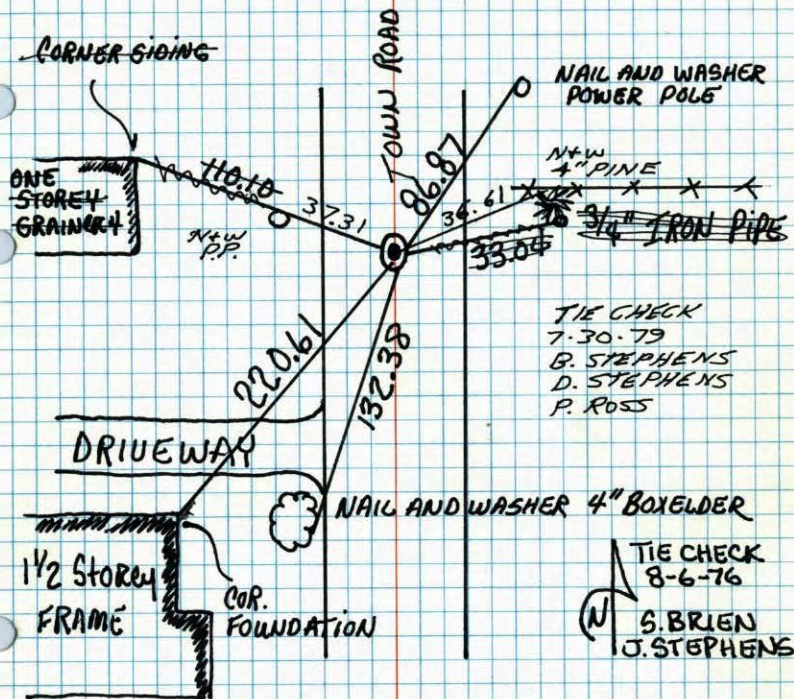 CORNER SIDING
TOWN ROAD
NAIL AND WASHER
POWER POLE
ONE
STOREY
GRAINERY
110.10
37.31
N+W
P.P.
86.87
36.61
N+W
4" PINE
33.04
3/4" IRON PIPE
TIE CHECK
7-30-79
B. STEPHENS
D. STEPHENS
P. ROSS
220.61
132.38
DRIVEWAY
NAIL AND WASHER 4" BOXELDER
1 1/2 STOREY
FRAME
COR.
FOUNDATION
N
TIE CHECK
8-6-76
S. BRIEN
J. STEPHENS